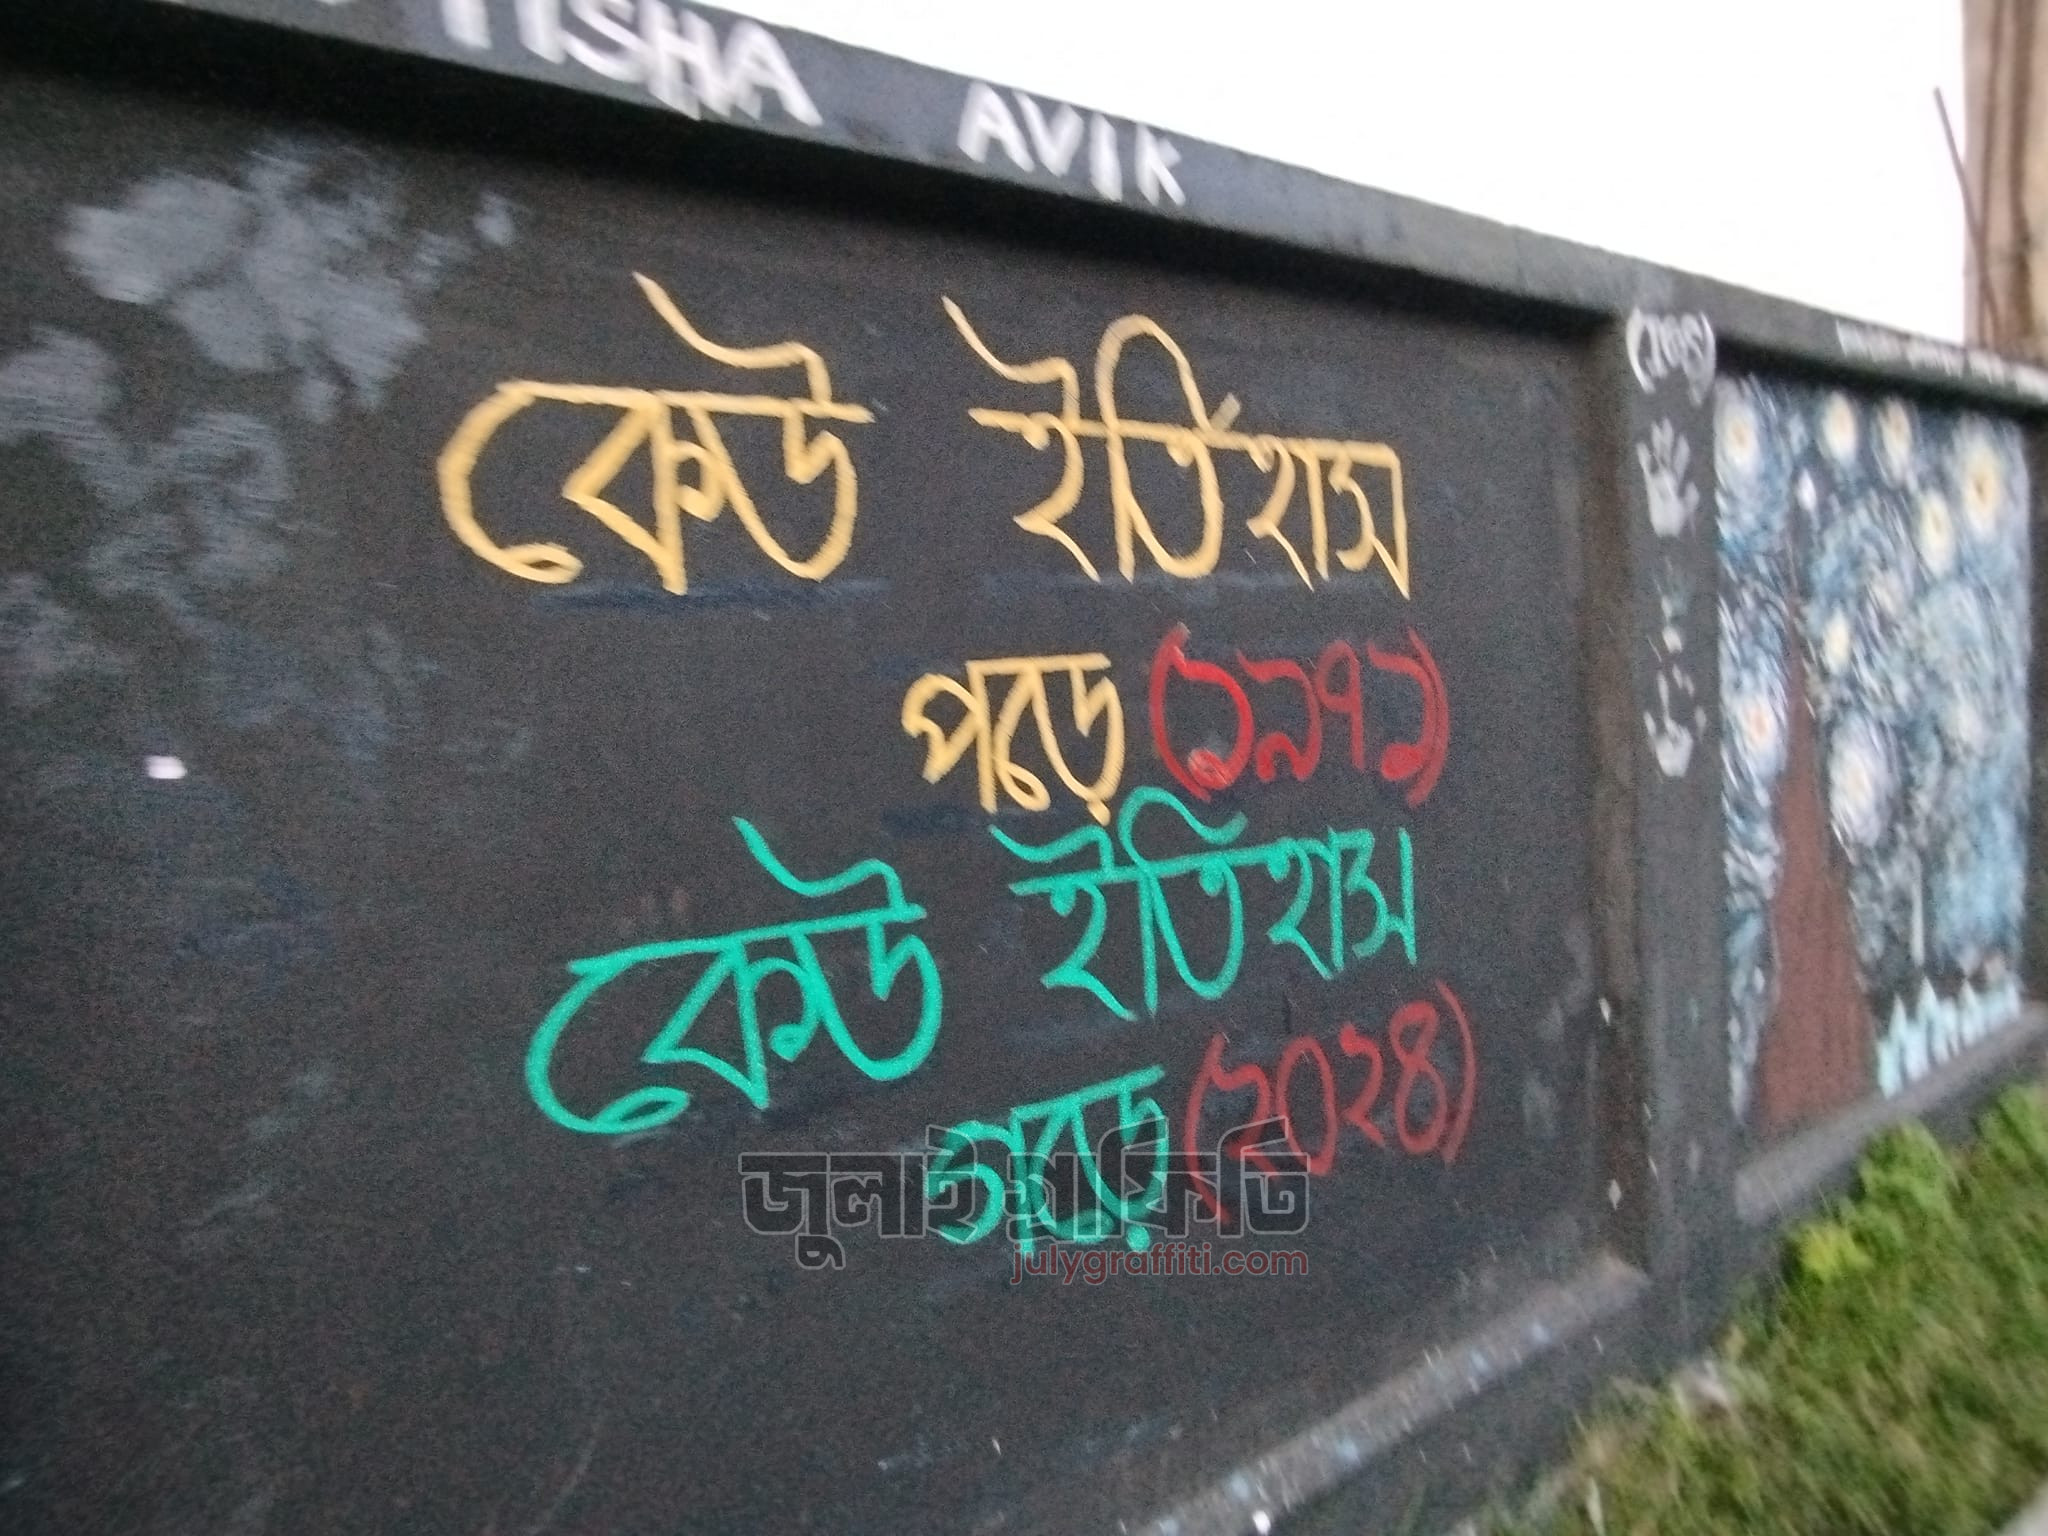 TISHA AVIK
কেউ ইতিহাস
পড়ে (১৯৭১)
কেউ ইতিহাস
গড়ে (২০২৪)
জুলাই গ্রাফিতি
julygraffiti.com